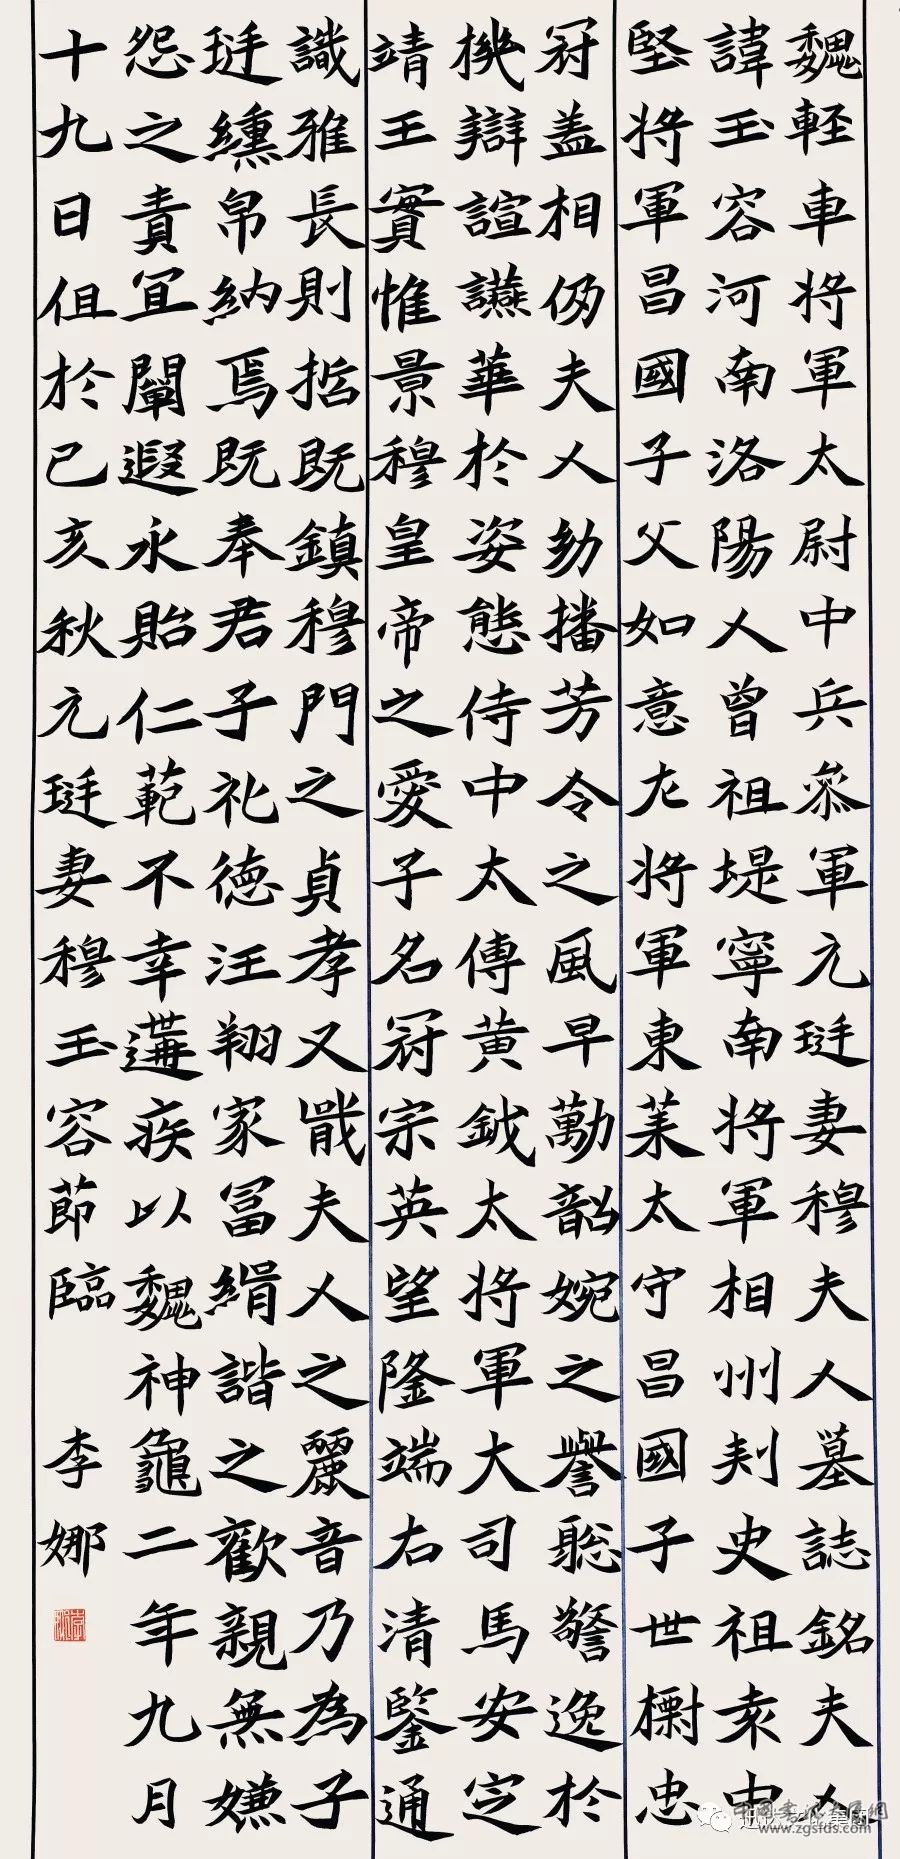 魏輕車將軍太尉中兵叅軍元珽妻穆夫人墓誌銘夫人
諱玉容河南洛陽人曾祖堤寧南將軍相州刺史祖袁中
堅將軍昌國子父如意左將軍東萊太守昌國子世櫥忠
冠盖相仍夫人幼播芳令之風早勵韶婉之譽聡警逸於
機辯諠讌華於姿態侍中太傅黄鉞太將軍大司馬安定
靖王實惟景穆皇帝之愛子名冠宗英望隆端右清鑒通
識雅長則哲既鎮穆門之貞孝又戢夫人之麗音乃為子
珽纁帛納焉既奉君子礼德汪翔家冨緝諧之歡親無嫌
怨之責宜闡遐永貽仁範不幸遘疾以魏神龜二年九月
十九日俎於己亥秋元珽妻穆玉容節臨 李娜
www.zgsfds.com